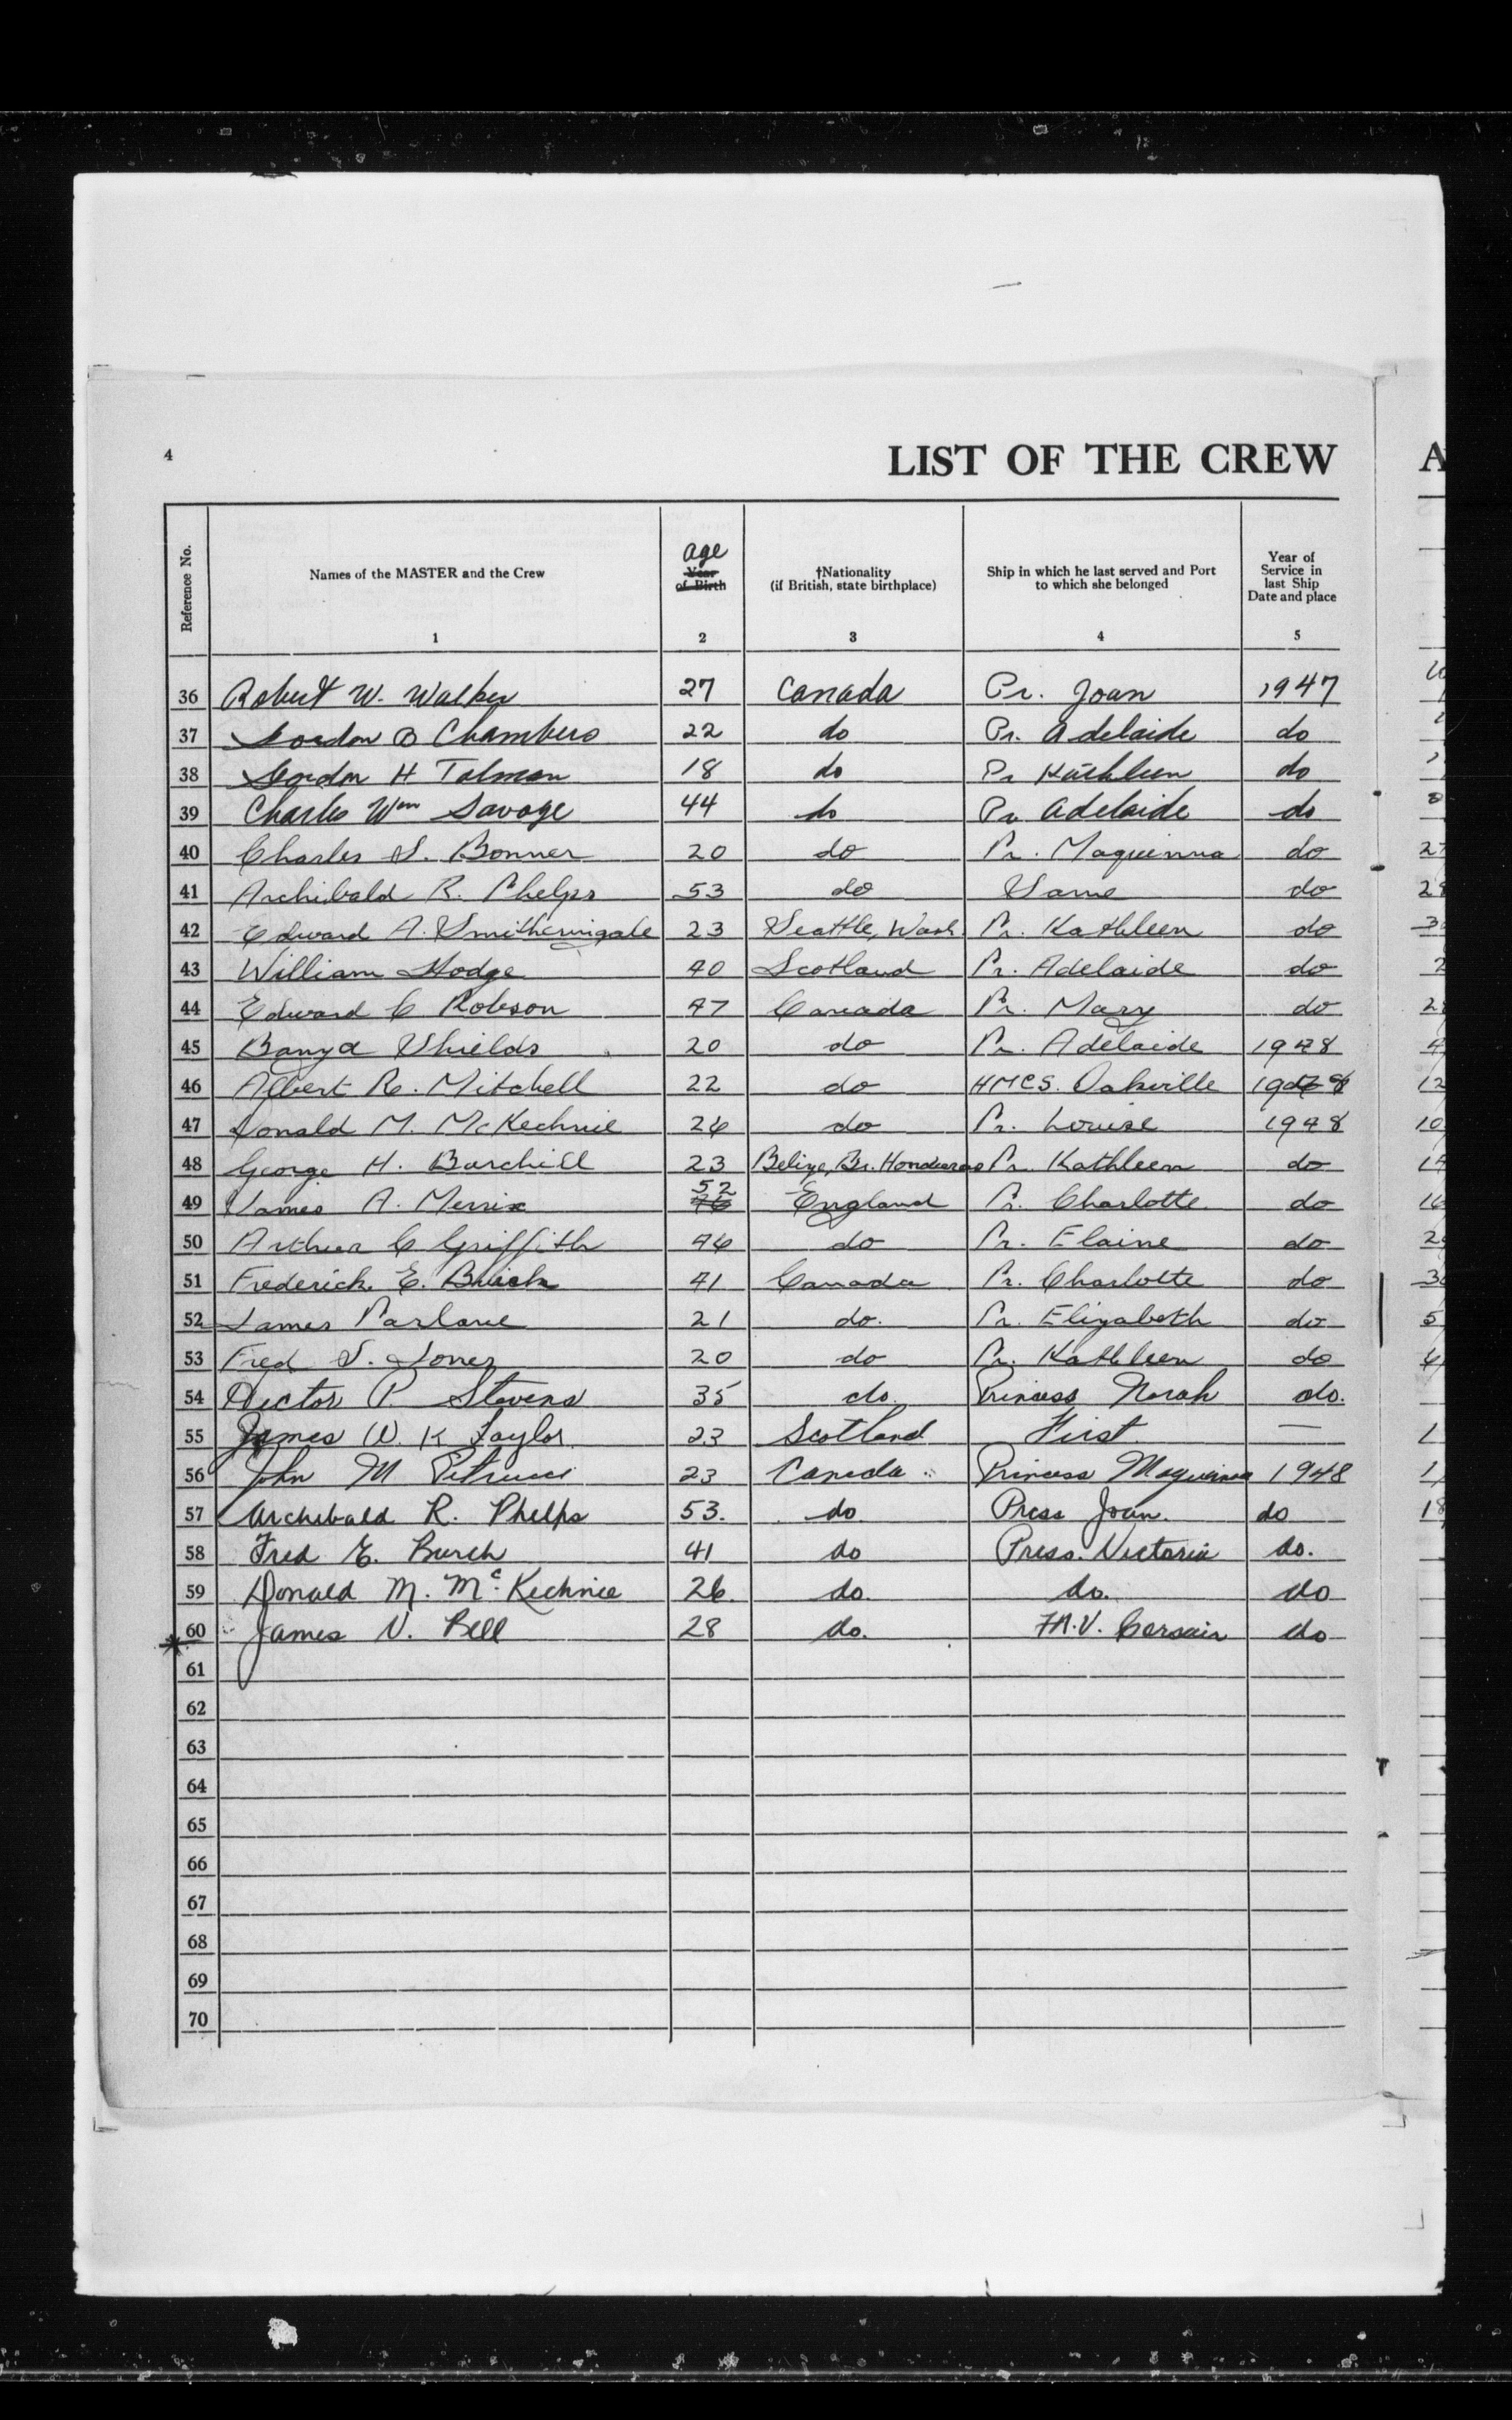 4
LIST OF THE CREW
A
Reference No.
Names of the MASTER and the Crew
age
Year of Birth
†Nationality
(if British, state birthplace)
Ship in which he last served and Port
to which she belonged
Year of
Service in
last Ship
Date and place
1 2 3 4 5
36 Robert W. Walker 27 Canada Pr. Joan 1947
37 Gordon B Chambers 22 do Pr. Adelaide do
38 Gordon H Tolman 18 do Pr Kathleen do
39 Charles Wm Savage 44 do Pr Adelaide do
40 Charles S. Bonner 20 do Pr. Maquinna do
41 Archibald R. Phelps 53 do Same do
42 Edward A. Smitheringale 23 Seattle, Wash. Pr. Kathleen do
43 William Hodge 40 Scotland Pr. Adelaide do
44 Edward C Robson 47 Canada Pr. Mary do
45 Shields 20 do Pr. Adelaide 1948
46 Albert R. Mitchell 22 do HMCS. Oakville
47 Donald M. McKechnie 26 do Pr. Louise 1948
48 George H. Barchill 23 Belize, Br. Honduras Pr. Kathleen do
49 James A. Merrix 52 England Pr. Charlotte do
50 Arthur C Griffith 46 do Pr. Elaine do
51 Frederick E. 41 Canada Pr. Charlotte do
52 James Parlane 21 do. Pr. Elizabeth do
53 Fred S. Jones 20 do Pr. Kathleen do
54 Victor P. Stevens 35 do. Princess Norah do.
55 James W. K Taylor 23 Scotland First —
56 John M Petrucci 23 Canada Princess Maquinna 1948
57 Archibald R. Phelps 53. do Press Joan. do
58 Fred E. Burch 41 do Press. Victoria do.
59 Donald M. Mc. Kechnie 26. do. do. do
60 James V. Bell 28 do. M.V. Corsair do
61
62
63
64
65
66
67
68
69
70